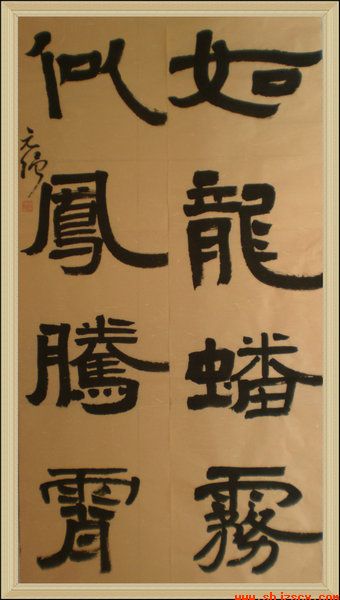 如龍蟠霧
似鳳騰霄
www.shjzscy.com